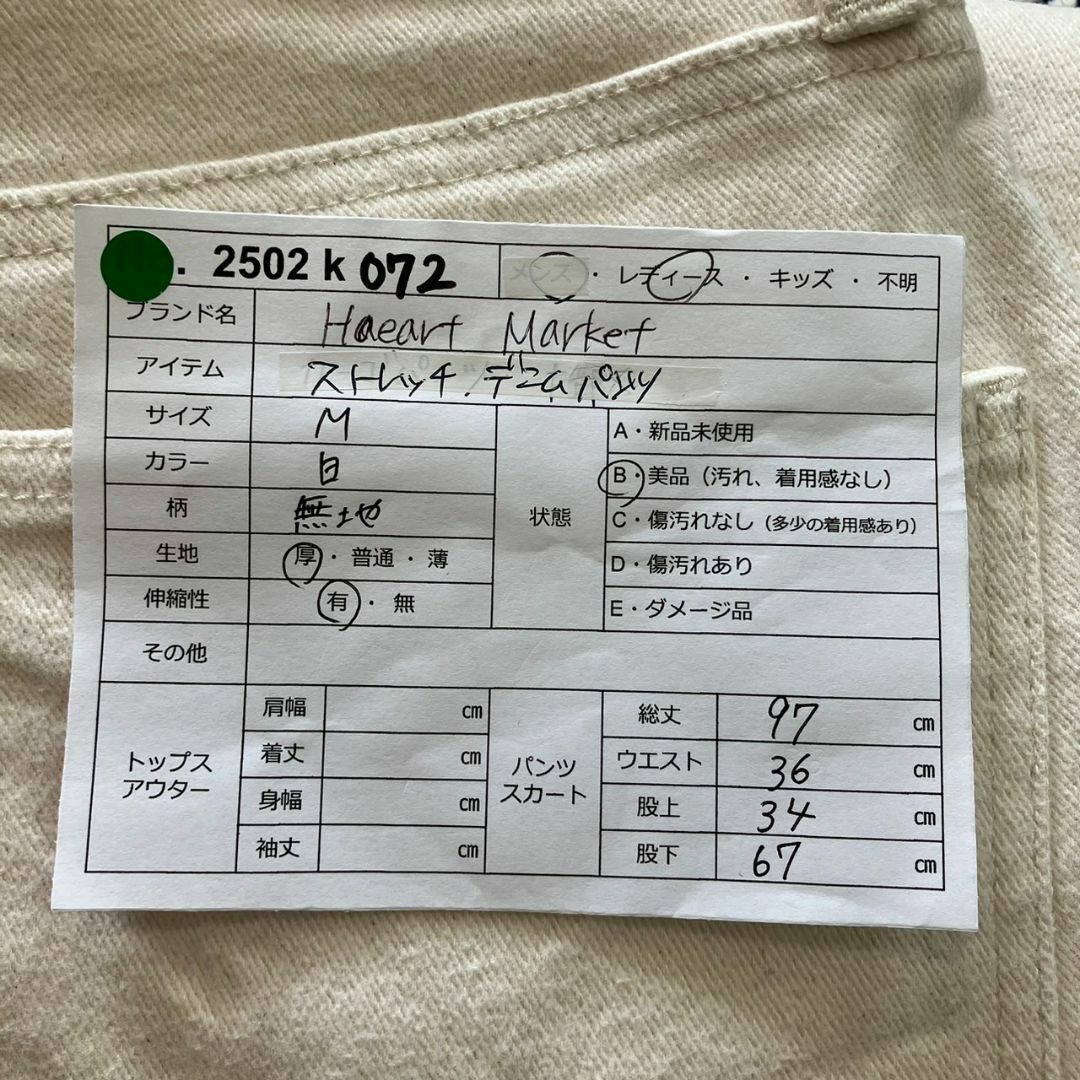 . 2502 k 072
メンズ ・ レディース ・ キッズ ・ 不明
ブランド名 Haeart Market
アイテム ストレッチデニムパンツ
サイズ M
カラー 白
柄 無地
生地 厚・普通・薄
伸縮性 有・無
状態
A・新品未使用
B・美品（汚れ、着用感なし）
C・傷汚れなし（多少の着用感あり）
D・傷汚れあり
E・ダメージ品
その他
トップス
アウター
肩幅 ㎝
着丈 ㎝
身幅 ㎝
袖丈 ㎝
パンツ
スカート
総丈 97 ㎝
ウエスト 36 ㎝
股上 34 ㎝
股下 67 ㎝